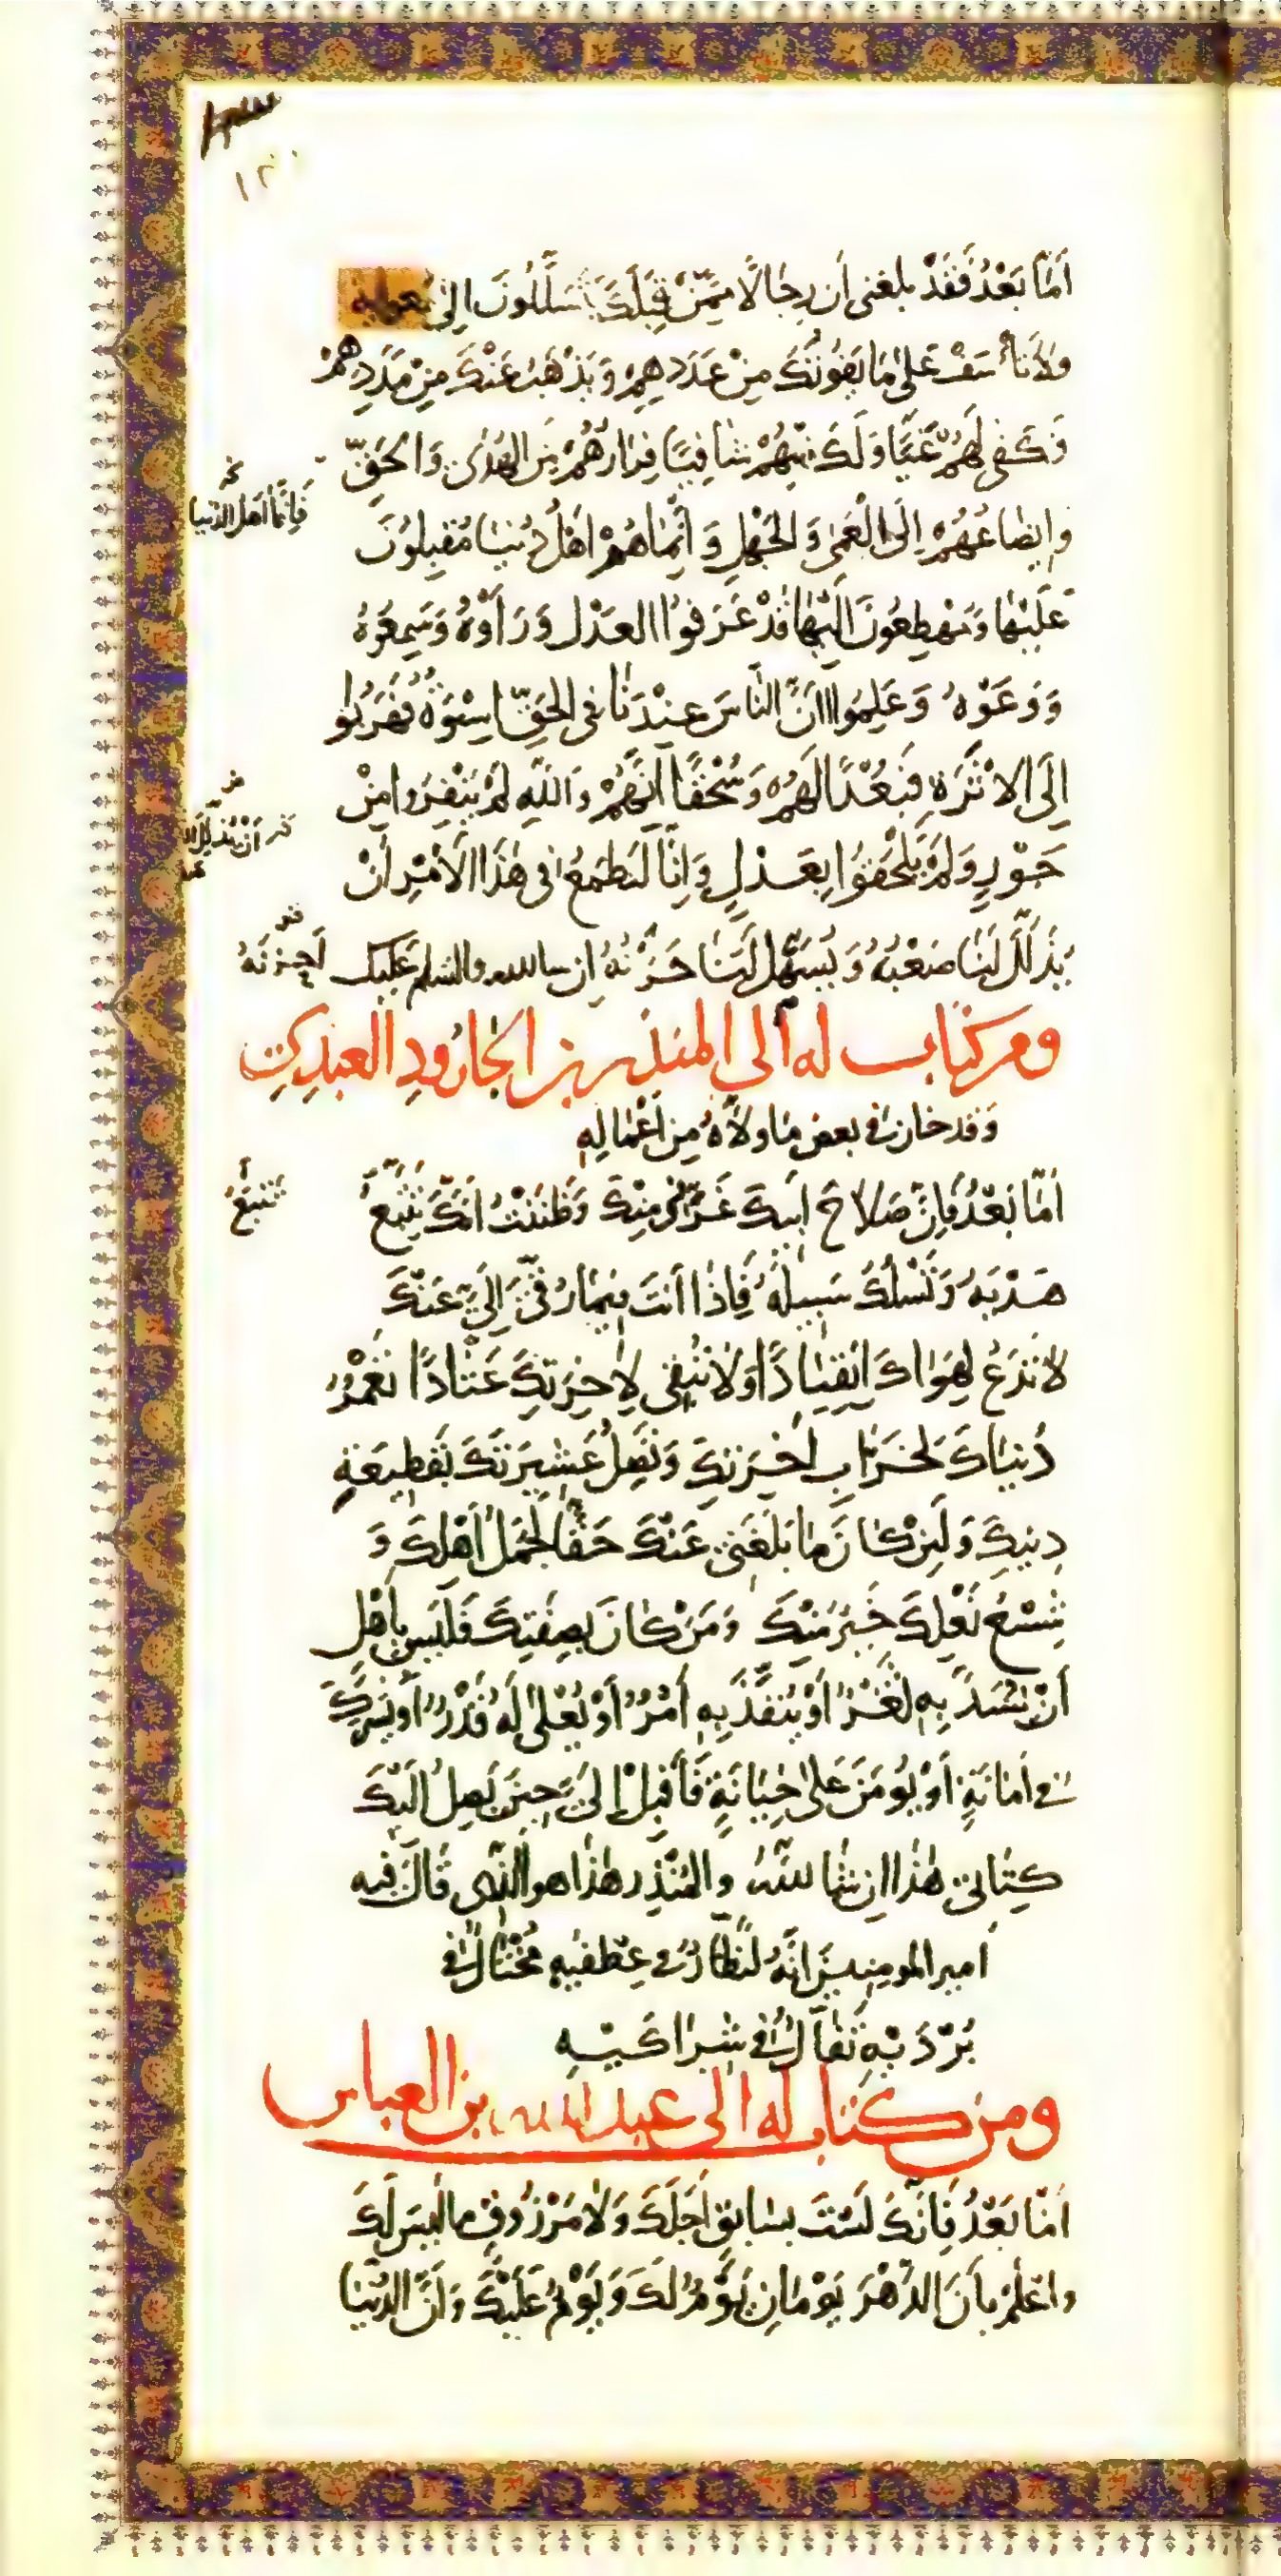 أَمَّا بَعْدُ فَقَدْ بلغني أن رِجَالًا مِمَّنْ قِبَلَكَ يَتَسَلَّلُونَ إلى مُعوية
وَلَا تَأْسَفْ عَلَى مَا يَفُوتُكَ مِنْ عَدَدِهِمْ وَيَذْهَبُ عَنْكَ مِنْ مَدَدِهِمْ
فَكَفَى لَهُمْ غَيًّا وَلَكَ مِنْهُمْ شَافِيًا فِرَارُهُمْ مِنَ الْهُدَى وَالْحَقِّ
وَإِيضَاعُهُمْ إِلَى الْعَمَى وَالْجَهْلِ وَإِنَّمَا هُمْ أَهْلُ دُنْيَا مُقْبِلُونَ
فَإِنَّمَا أَهْلُ الدُّنْيَا
عَلَيْهَا وَمُهْطِعُونَ إِلَيْهَا قَدْ عَرَفُوا الْعَدْلَ وَرَأَوْهُ وَسَمِعُوهُ
وَوَعَوْهُ وَعَلِمُوا أَنَّ النَّاسَ عِنْدَنَا فِي الْحَقِّ أُسْوَةٌ فَهَرَبُوا
إِلَى الْأَثَرَةِ فَبُعْدًا لَهُمْ وَسُحْقًا إِنَّهُمْ وَاللهِ لَمْ يَنْفِرُوا مِنْ
جَوْرٍ وَلَمْ يَلْحَقُوا بِعَدْلٍ وَإِنَّا لَنَطْمَعُ فِي هَذَا الْأَمْرِ أَنْ
يُذَلِّلَ لَنَا صَعْبَهُ وَيُسَهِّلَ لَنَا حَزْنَهُ إن شاالله والسلم عَلَيْك
ومن كتاب له إلى المنذر بن الجارُودِ العبدِي
وَقد خان في بعض ما ولَّاهُ مِن أَعْمَالِهِ
أَمَّا بَعْدُ فَإِنَّ صَلَاحَ أَبِيكَ غَرَّنِي مِنْكَ وَظَنَنْتُ أَنَّكَ تَتَّبِعُ
تَتْبَعُ
هَدْيَهُ وَتَسْلُكُ سَبِيلَهُ فَإِذَا أَنْتَ فِيمَا رُقِّيَ إِلَيَّ عَنْكَ
لَا تَدَعُ لِهَوَاكَ انْقِيَادًا وَلَا تُبْقِي لِآخِرَتِكَ عَتَادًا تَعْمُرُ
دُنْيَاكَ بِخَرَابِ آخِرَتِكَ وَتَصِلُ عَشِيرَتَكَ بِقَطِيعَةِ
دِينِكَ وَلَئِنْ كَانَ مَا بَلَغَنِي عَنْكَ حَقًّا لَجَمَلُ أَهْلِكَ وَ
شِسْعُ نَعْلِكَ خَيْرٌ مِنْكَ وَمَنْ كَانَ بِصِفَتِكَ فَلَيْسَ بِأَهْلٍ
أَنْ يُسَدَّ بِهِ ثَغْرٌ أَوْ يُنَفَّذَ بِهِ أَمْرٌ أَوْ يُعْلَى لَهُ قَدْرٌ أَوْ يُشْرَكَ
فِي أَمَانَةٍ أَوْ يُومَنَ عَلَى خِيَانَةٍ فَأَقْبِلْ إِلَيَّ حِينَ يَصِلُ إِلَيْكَ
كِتَابِي هَذَا إن شَاءَ اللهُ وَالمُنْذِر هَذَا هو الَّذِي قَالَ فيه
أمير المومنين إِنَّهُ لَنَظَّارٌ فِي عِطْفَيْهِ مُخْتَالٌ فِي
بُرْدَيْهِ تَفَّالٌ فِي شِرَاكَيْهِ
ومن كتاب له إلى عبد الله بن العباس
أَمَّا بَعْدُ فَإِنَّكَ لَسْتَ بِسَابِقٍ أَجَلَكَ وَلَا مَرْزُوقٍ مَا لَيْسَ لَكَ
وَاعْلَمْ بِأَنَّ الدَّهْرَ يَوْمَانِ يَوْمٌ لَكَ وَيَوْمٌ عَلَيْكَ وَأَنَّ الدُّنْيَا